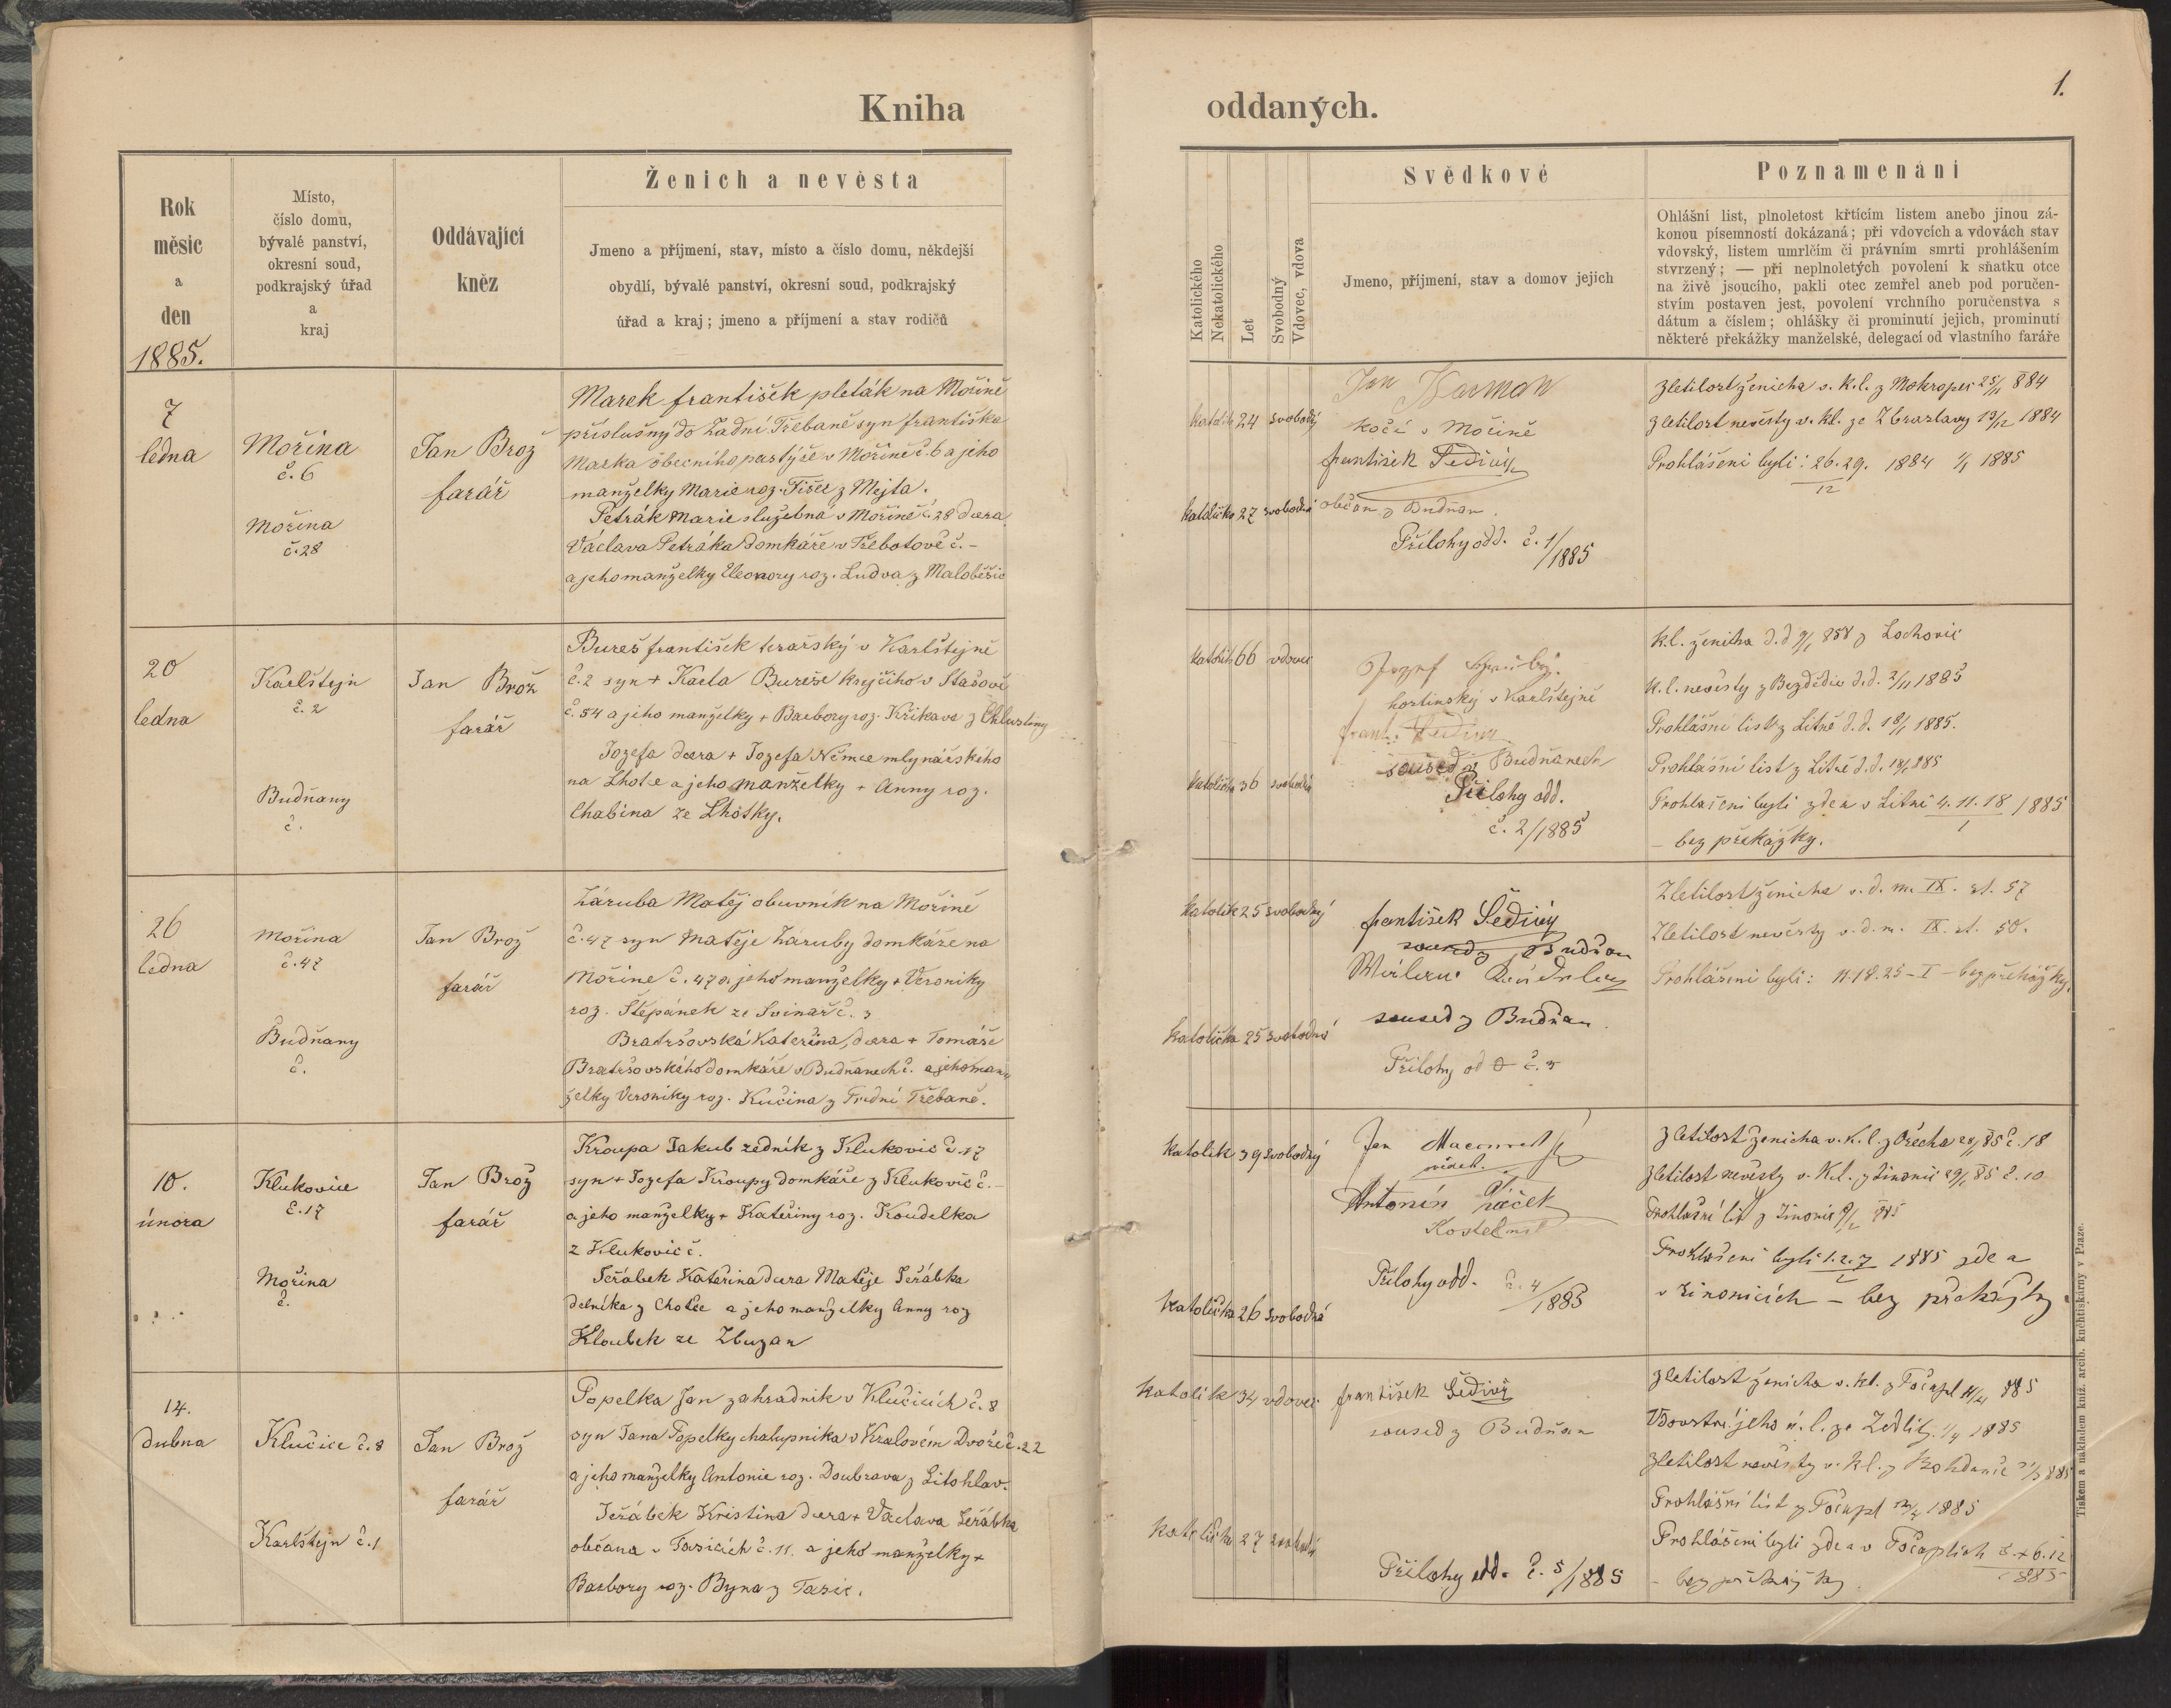 Kniha
oddaných.
1.
Rok
měsíc
a
den
1885.
Místo,
číslo domu,
bývalé panství,
okresní soud,
podkrajský úřad
a
kraj
Oddávající
kněz
Ženich a nevěsta
Jmeno a příjmení, stav, místo a číslo domu, někdejší
obydlí, bývalé panství, okresní soud, podkrajský
úřad a kraj; jmeno a příjmení a stav rodičů
Katolického
Nekatolického
Let
Svobodný
Vdovec, vdova
Svědkové
Jmeno, příjmení, stav a domov jejich
Poznamenání
Ohlášní list, plnoletost křtícím listem anebo jinou zá-
konou písemností dokázaná; při vdovcích a vdovách stav
vdovský, listem umrlčím či právním smrti prohlášením
stvrzený; — při neplnoletých povolení k sňatku otce
na živě jsoucího, pakli otec zemřel aneb pod poručen-
stvím postaven jest, povolení vrchního poručenstva s
dátum a číslem; ohlášky či prominutí jejich, prominutí
některé překážky manželské, delegací od vlastního faráře
7
ledna
Mořina
č. 6
Mořina
č. 28
Jan Brož
farář
Marek František pleták na Mořině
příslušný do Zadní Třebaně syn Františka
Marka obecního pastýře v Mořině č. 6 a jeho
manželky Marie roz. Fišer z Mejta.
Petrák Marie služebná v Mořině č. 28 dcera
Václava Petráka domkáře v Třebotově č. -
a jeho manželky Eleonory roz. Ludva z
katolík 24 svobodný
katolička 27 svobodná
Jan
kočí v Mořině
František Šedivý
občan z Budňan.
Přílohy odd. č. 1/1885
Zletilost ženicha v. k.l. z Mokropes 25/11 884
Zletilost nevěsty v. kl. ze Zbraslavy 13/12 1884
Prohlášeni byli: 26. 29./12 1884 1/1 1885
20
ledna
Karlštejn
č. 2
Budňany
č.
Jan Brož
farář
Bureš František hrařský v Karlštejně
č. 2 syn + Karla Bureše krejčího v Stašově
č. 54 a jeho manželky + Barbory roz. Křikava z Chlustiny
Jozefa dcera + Jozefa Němce mlynářského
na Lhotce a jeho manželky + Anny roz.
Chabina ze Lhótky.
katolík 66 vdovec
katolička 36 svobodná
Jozef
hostinský v Karlštejně
Frant. Šedivý
soused v Budňanech
Přílohy odd.
č. 2/1885
kl. ženicha d.d. 9/1 858 z Lochovic
k. l. nevěsty z Bezdědic d.d. 2/11 1885
Prohlášní list z Litně d. d. 18/1 1885.
Prohlášní list z Litně d. d. 18/1 885
Prohlášeni byli zde a v Litni 4. 11. 18/1 1885
– bez překážky.
26
ledna
Mořina
č. 47
Budňany
č.
Jan Brož
farář
Záruba Matěj obuvník na Mořině
č. 47 syn Matěje Záruby domkáře na
Mořině č. 47 a jeho manželky + Veroniky
roz. Štěpánek ze Svinař č. 3
Bratršovská Kateřina, dcera + Tomáše
Bratršovského domkáře v Budňanech č. a jeho man
želky Veroniky roz. Kučina z Třebaně.
katolík 25 svobodný
katolička 25 svobodná
František Šedivý
soused z Budňan
soused z Budňan
Přílohy odd č. 3
Zletilost ženicha v. d. m. IX. st. 57
Zletilost nevěsty v. d. m. IX. st. 50.
Prohlášeni byli: 11. 18. 25 – I – bez překážky.
10.
února
Klukovice
č. 17
Mořina
č.
Jan Brož
farář
Kroupa Jakub zedník z Klukovic č. 17
syn + Jozefa Kroupy domkáře z Klukovic č. –
a jeho manželky + Kateřiny roz. Koudelka
z Klukovic č.
Jeřábek Kateřina dcera Matěje Jeřábka
dělníka z Chotče a jeho manželky Anny roz
Kloubek ze Zbuzan
katolík 39 svobodný
katolička 26 svobodná
Jan
Antonín
Kostelník
Přílohy odd. č. 4/1885
Zletilost ženicha v. k. l. z Ořecha 28/1 85 č. 18
Zletilost nevěsty v. k.l. z Jinonic 29/1 85 č. 10
Prohlášní list z Jinonic 9/2 885
Prohlášeni byli 1. 2. 7 1885 zde a
v Jinonicích – bez překážky.
14.
dubna
Klučice č. 8
Karlštejn č. 1
Jan Brož
farář
Popelka Jan zahradník v Klučicích č. 8
syn Jana Popelky chalupníka v Kralovém Dvoře č. 22
a jeho manželky Antonie roz. Doubrava z Litohlav.
Jeřábek Kristina dcera + Václava Jeřábka
občana v Tasicích č. 11. a jeho manželky +
Barbory roz. Byna z Tasic.
katolík 34 vdovec
katolička 27 svobodná
František Šedivý
soused z Budňan
Přílohy odd. č. 5/1885
Zletilost ženicha v. kl. z Počapl 885
Vdovství jeho ú. l. ze Zedlitz. 1/4 1885
Zletilost nevěsty v. kl. z 885
Prohlášní list z Počapl 1885
Prohlášeni byli zde a v Počaplích 5. + 6. 12
885
– bez překážky.
Tiskem a nakladem kníž. arcib. knihtiskárny v Praze.